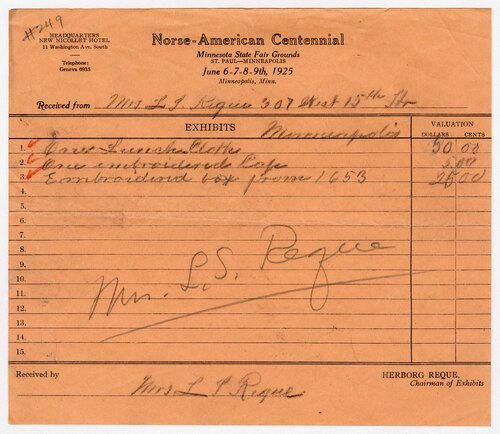 #249
HEADQUARTERS
NEW NICOLLET HOTEL
11 Washington Ave. South
Telephone:
Geneva 6935
Norse-American Centennial
Minnesota State Fair Grounds
ST. PAUL—MINNEAPOLIS
June 6-7-8-9th, 1925
Minneapolis, Minn.
Received from Mrs L S Reque 307 West 15th Str
Minneapolis
EXHIBITS
VALUATION
DOLLARS CENTS
1. One Lunch Cloth 50 00
2. One embroidered Cap 5.00
3. Embroidered box from 1653 25 00
4.
5.
6.
7.
8.
9.
10.
11.
12.
13.
14.
15.
Mrs. L. S. Reque
Received by Mrs L S Reque
HERBORG REQUE,
Chairman of Exhibits